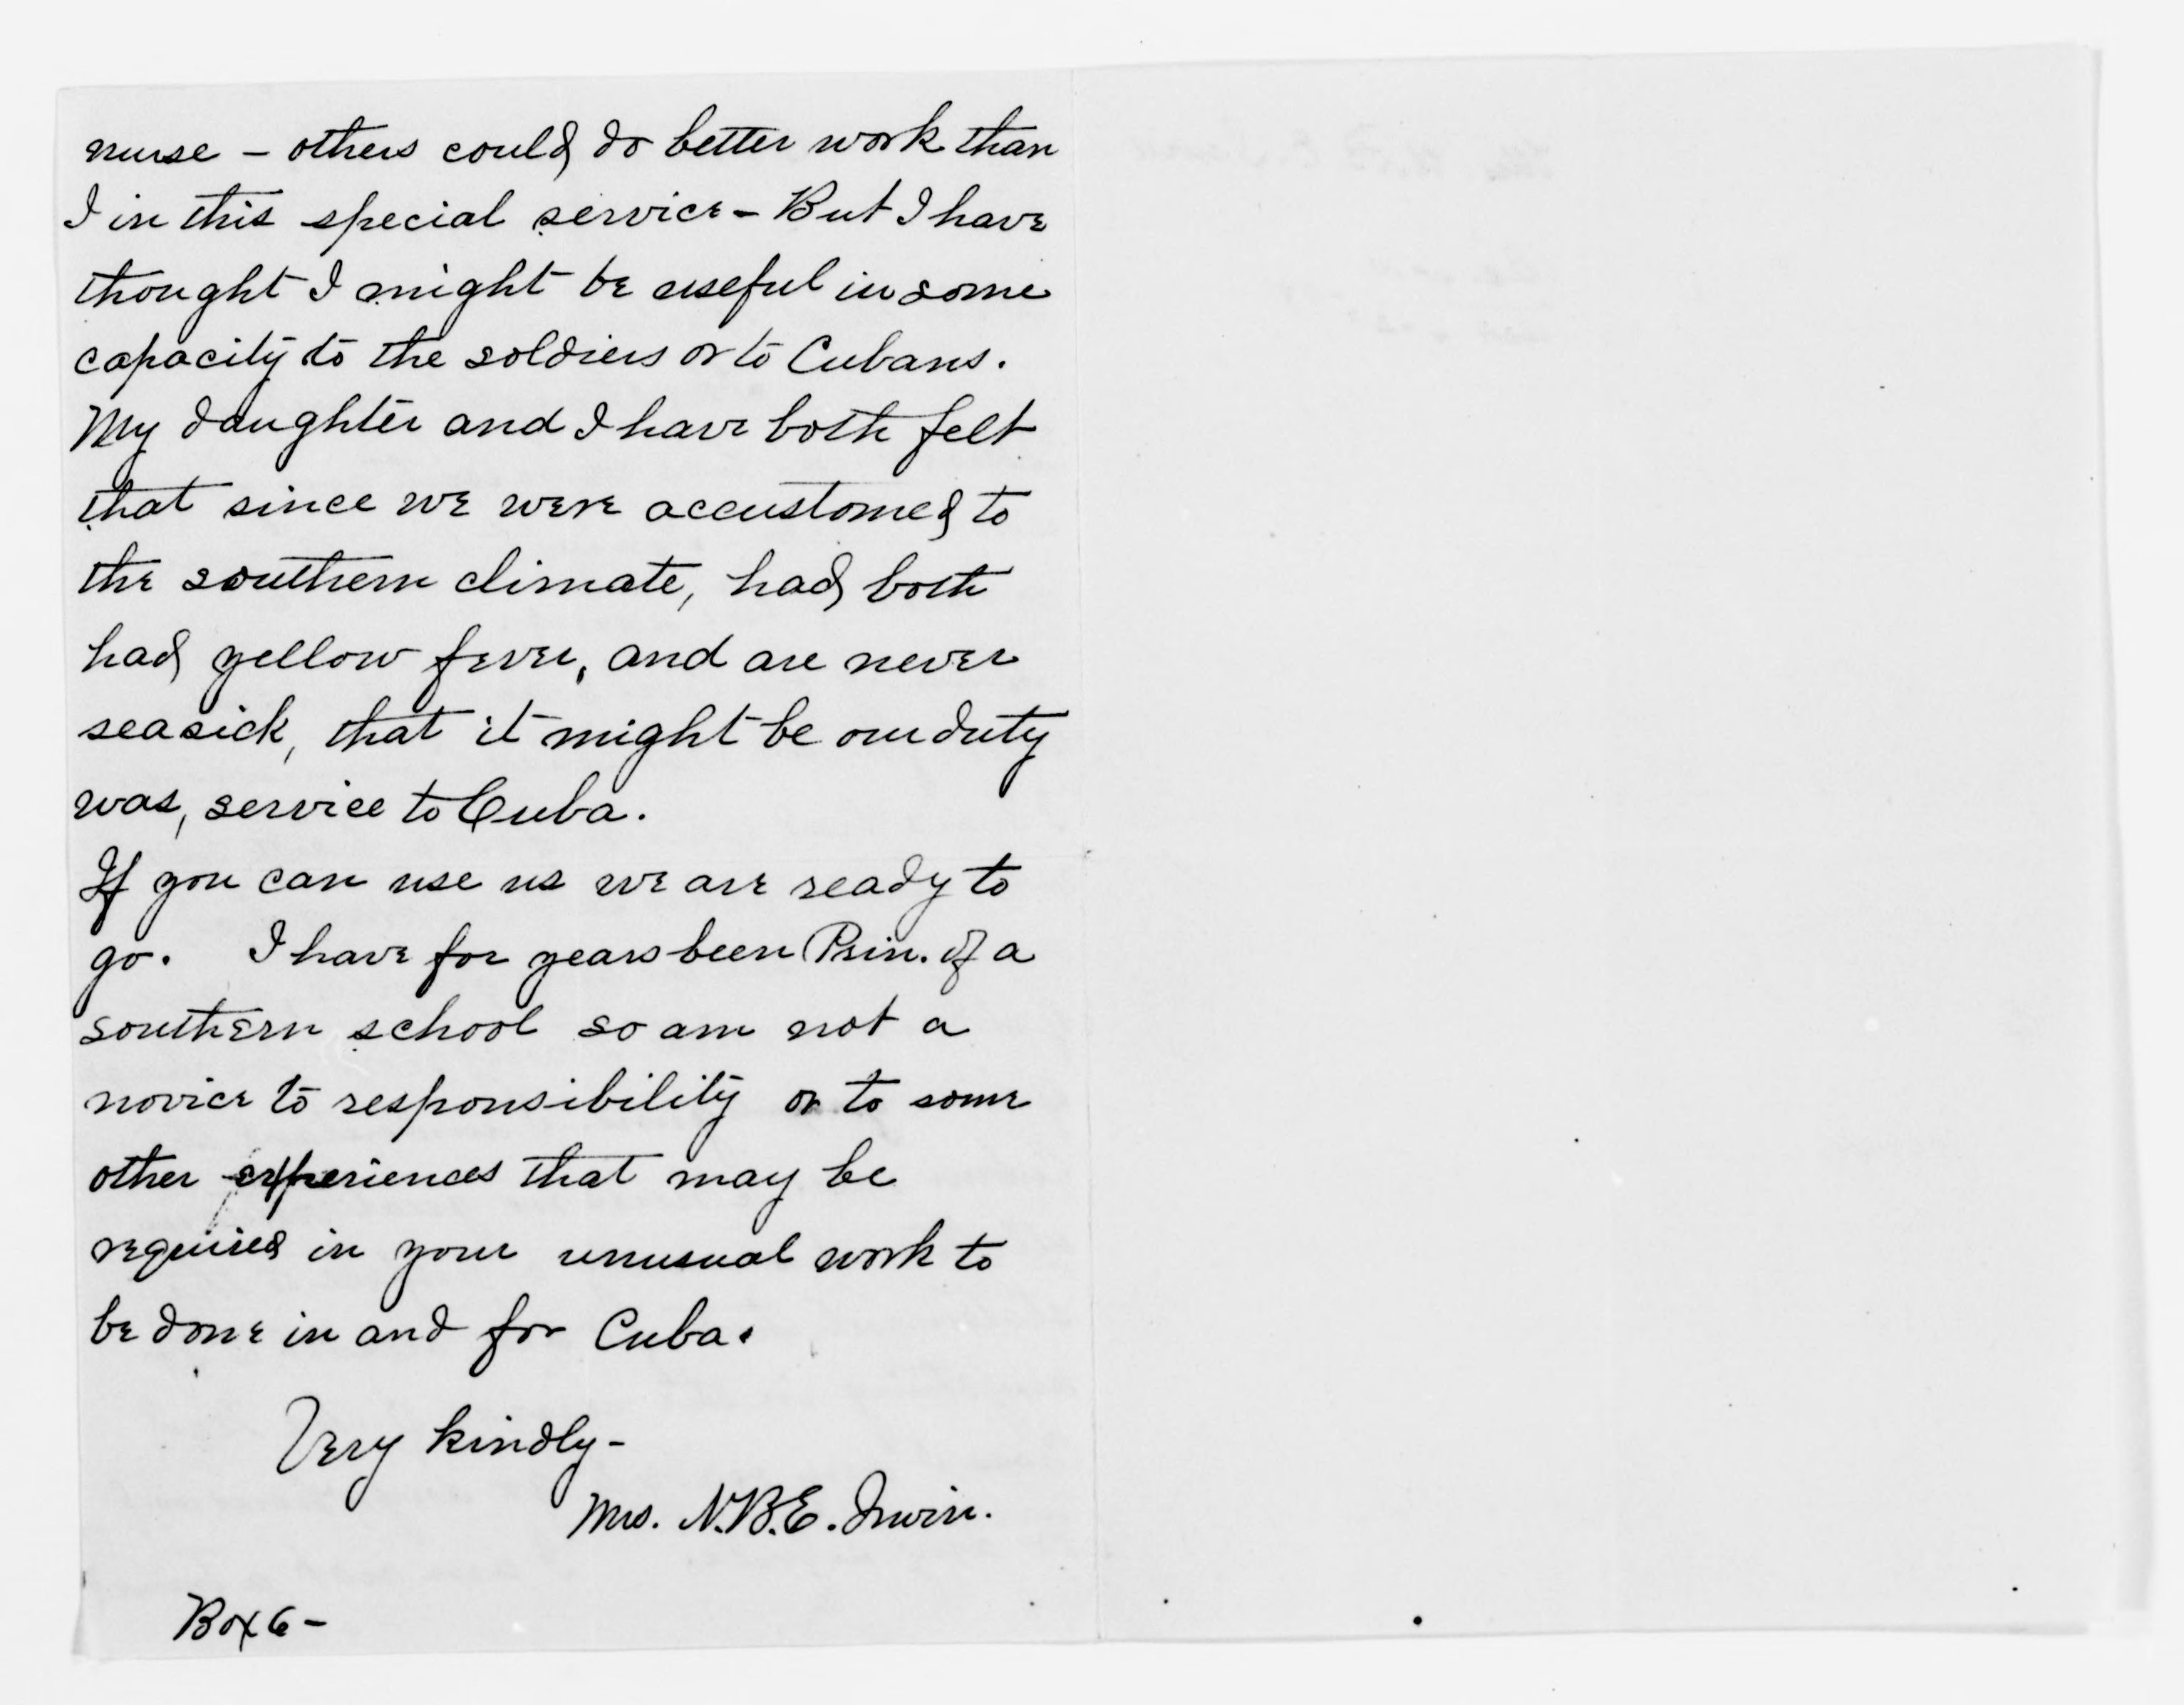 nurse - others could do better work than
I in this special service - But I have
thought I might be useful in some
capacity to the soldiers or to Cubans.
My daughter and I have both felt
that since we were accustomed to
the southern climate, had both
had yellow fever, and are never
seasick, that it might be our duty
was, service to Cuba.
If you can use us we are ready to
go. I have for years been Prin. of a
southern school so am not a
novice to responsibility or to some
other experiences that may be
required in your unusual work to
be done in and for Cuba.
Very kindly -
Mrs. N.B.E. Irwin.
Box 6 -